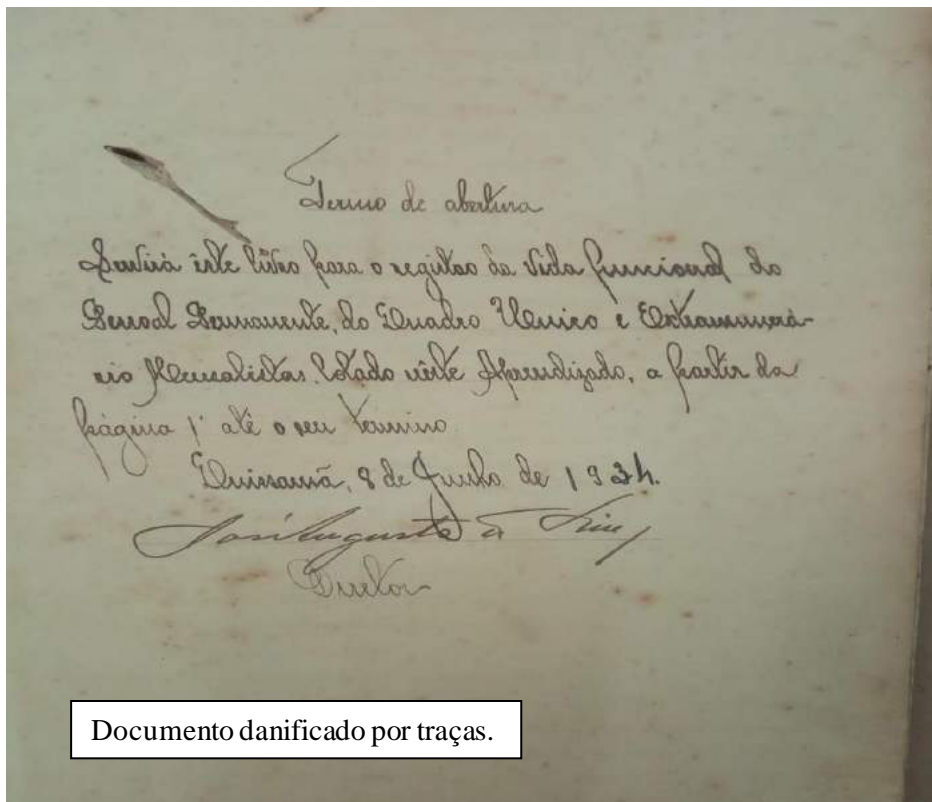 Termo de abertura
Servirá êste livro para o registro da vida funcional do
Pessoal Permanente, do Quadro Unico e Extranumerá-
rio Mensalistas, lotado nêste Aprendizado, a partir da
página 1ª até o seu termino
Quissamã, 8 de Junho de 1934.
José Augusto
Diretor
Documento danificado por traças.